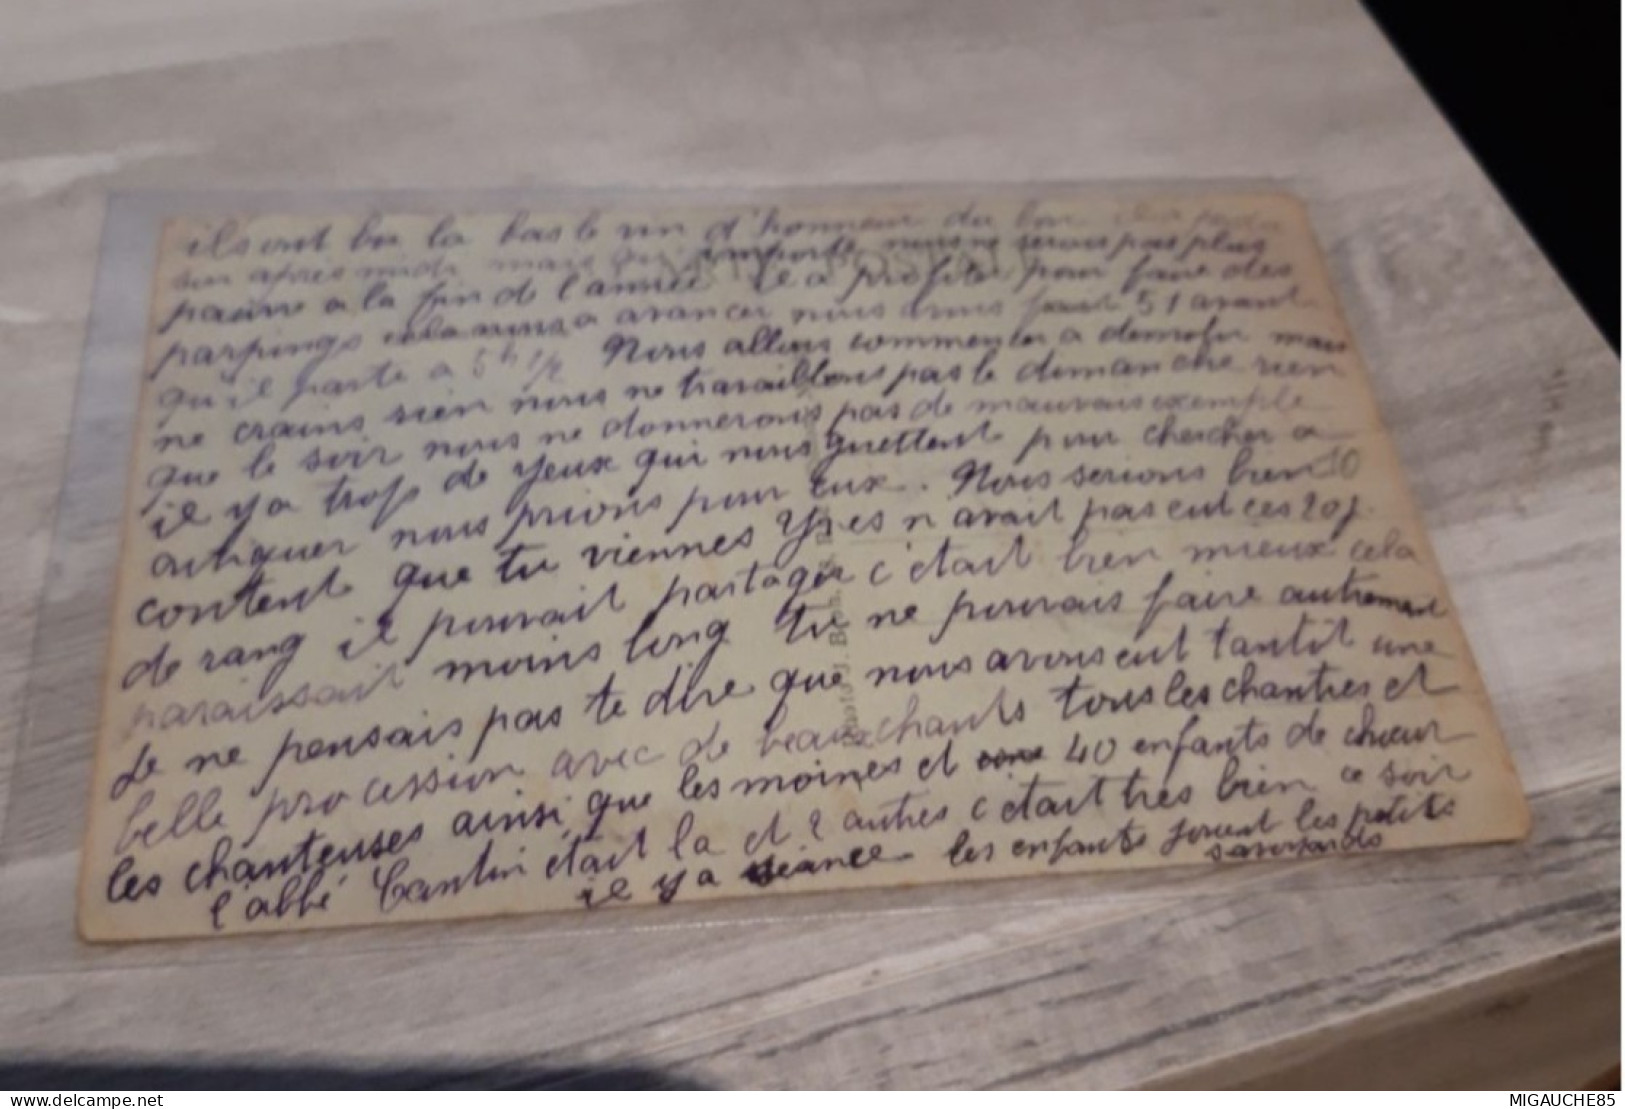 ils ont bu la bas le vin d'honneur du bon
un après midi mais qu'importe nous ne serons pas plus
pauvre a la fin de l'année Il a profité pour faire des
parpings cela nous a avancer nous avons fait 51 avant
qu'il parte a 5h 1/2 Nous allons commencer a demolir mais
ne crains rien nous ne travaillons pas le dimanche rien
que le soir nous ne donnerons pas de mauvais exemple
il y a trop de yeux qui nous guettent pour chercher a
critiquer nous prions pour eux. Nous serions bien
content que tu viennes Yves n'avait pas eut ces 20 j.
de rang il pouvait partager c'etait bien mieux cela
paraissait moins long tu ne pouvais faire autrement
Je ne pensais pas te dire que nous avons eut tantit une
belle procession avec de beaux chants tous les chantres et
les chanteuses ainsi que les moines et 40 enfants de chœur
l'abbé Cantin était la et 2 autres c'était très bien ce soir
il y a séance les enfants jouent les petits
savoyards
CARTE POSTALE
MIGAUCHE85